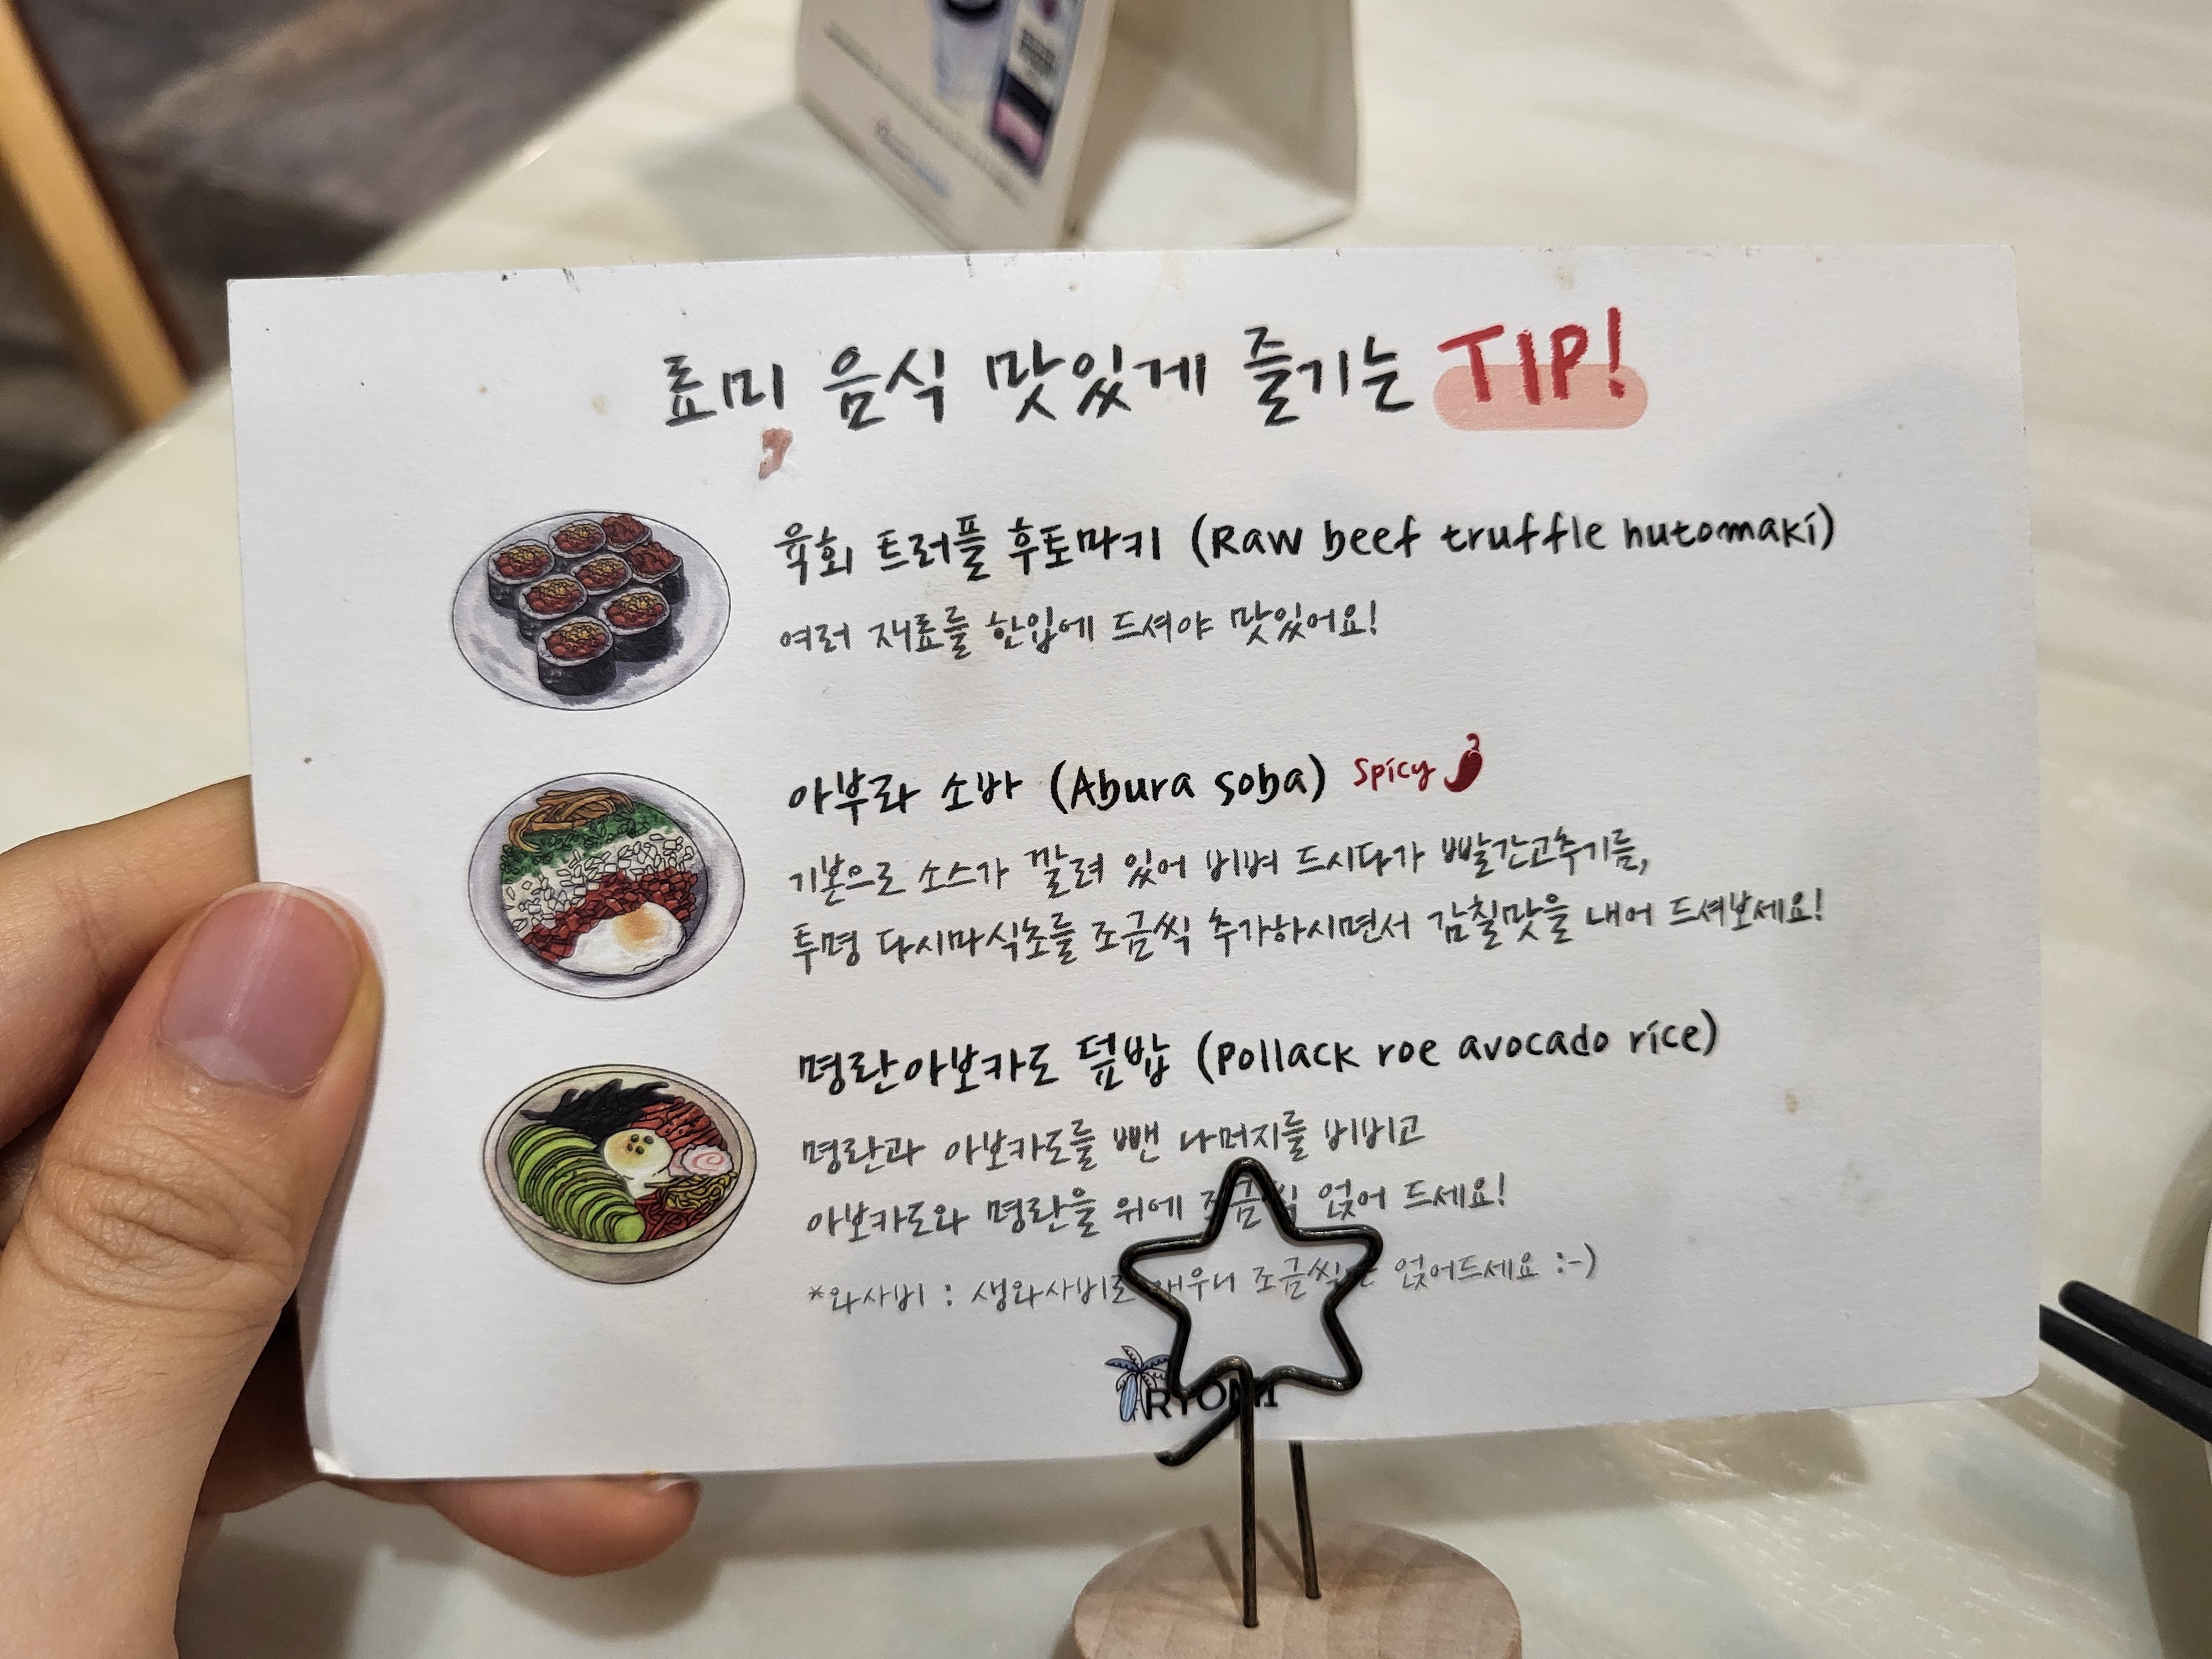 료미 음식 맛있게 즐기는 TIP!
육회 트러플 후토마키 (Raw beef truffle hutomaki)
여러 재료를 한입에 드셔야 맛있어요!
아부라 소바 (Abura soba) Spicy
기본으로 소스가 깔려 있어 비벼 드시다가 빨간고추기름,
투명 다시마식초를 조금씩 추가하시면서 감칠맛을 내어 드셔보세요!
명란아보카도 덮밥 (Pollack roe avocado rice)
명란과 아보카도를 뺀 나머지를 비비고
아보카도와 명란을 위에 조금씩 얹어 드세요!
*와사비 : 생와사비로 매우니 조금씩만 얹어드세요 :-)
RYOMI